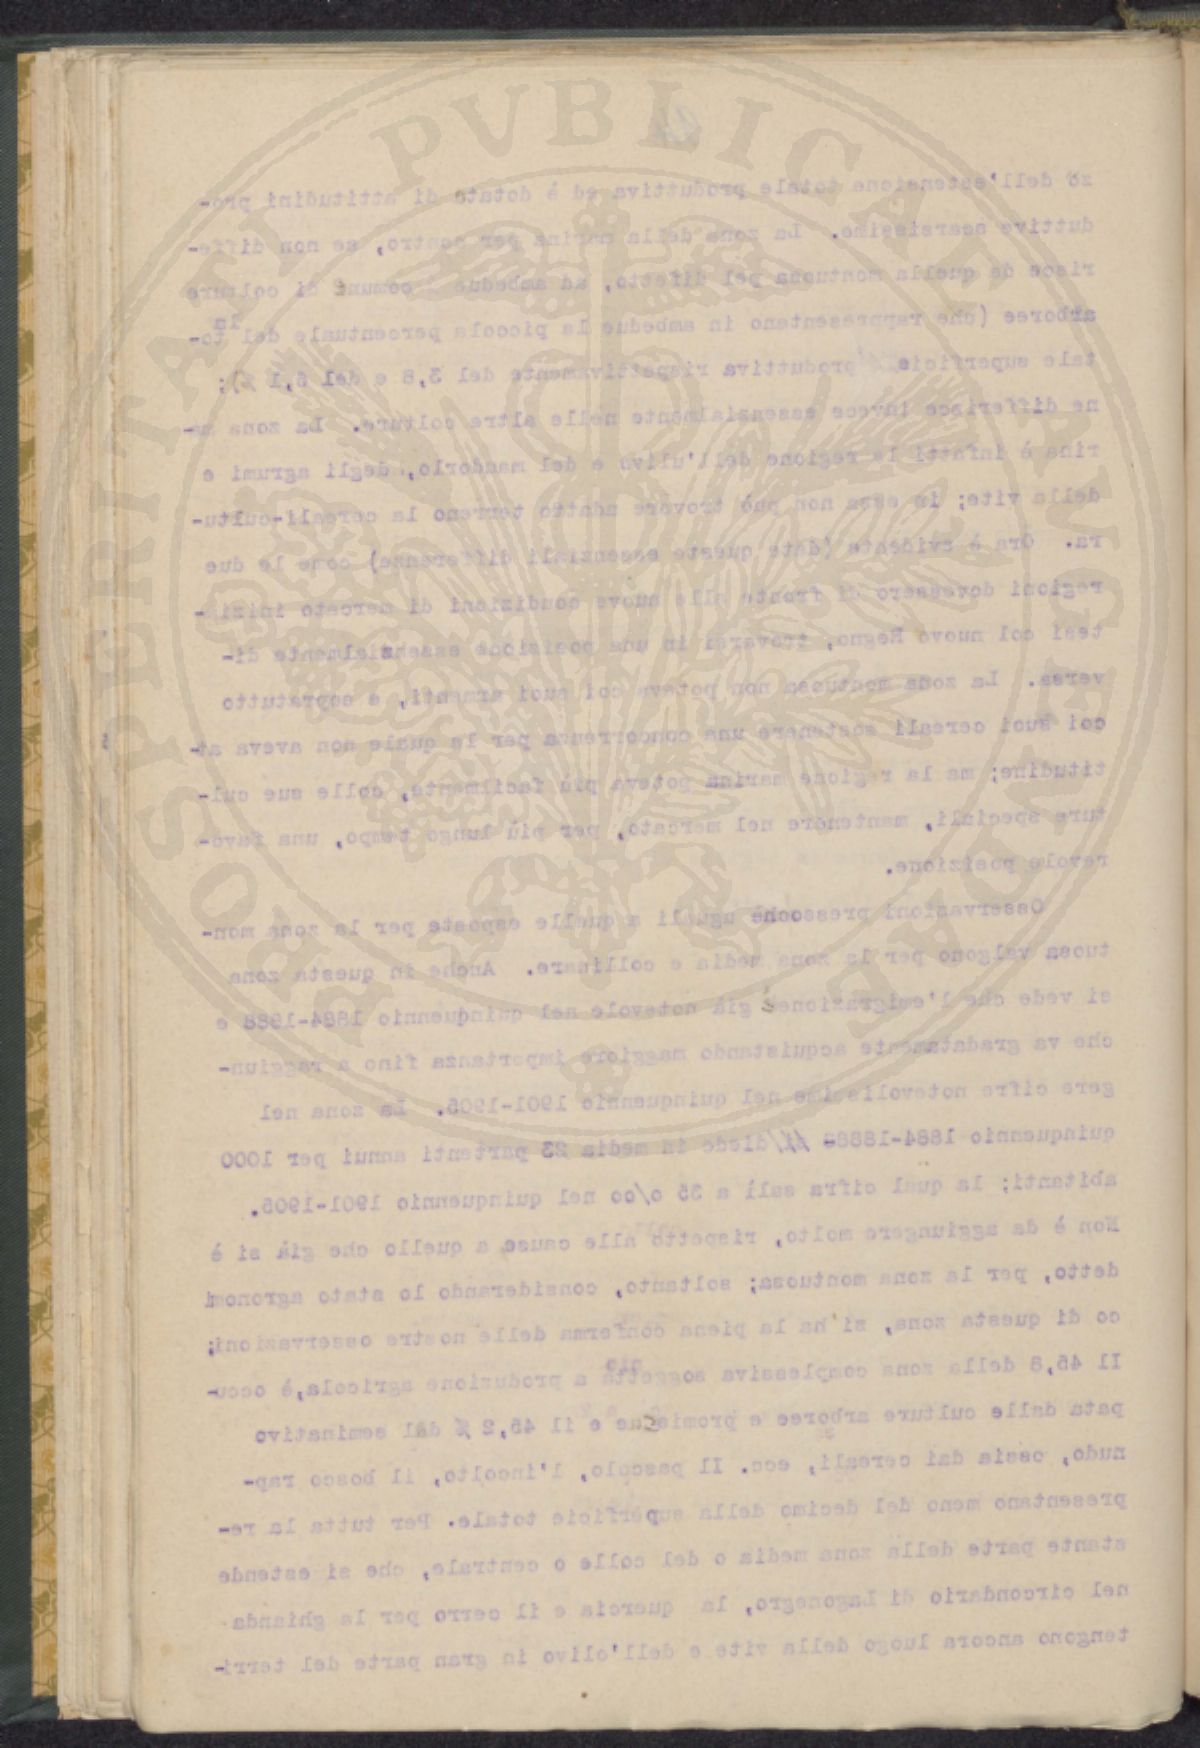 zo dell'estensione totale produttiva ed è dotato di attitudini pro-
duttive scarsissime. La zona della marina per contro, se non diffe-
risce da quella montuosa pel difetto, ad ambedue comune di colture
arboree (che rappresentano in ambedue la piccola percentuale del to-
tale superficie produttiva rispettivamente del 3,8 e del 6,1 %);
ne differisce invece essenzialmente nelle altre colture. La zona ma-
rina è infatti la regione dell'ulivo e del mandorlo, degli agrumi e
della vite; in essa non può trovare adatto terreno la cereali-cultu-
ra. Ora è evidente (date queste essenziali differenze) come le due
regioni dovessero di fronte alle nuove condizioni di mercato inizia-
tesi col nuovo Regno, trovarsi in una posizione essenzialmente di-
versa. La zona montuosa non poteva coi suoi armenti, e sopratutto
coi suoi cereali sostenere una concorrenza per la quale non aveva at-
titudine; ma la regione marina poteva più facilmente, colle sue cul-
ture speciali, mantenere nel mercato, per più lungo tempo, una favo-
revole posizione.
Osservazioni pressochè uguali a quelle esposte per la zona mon-
tuosa valgono per la zona media e collinare. Anche in questa zona
si vede che l'emigrazione è già notevole nel quinquennio 1884-1888 e
che va gradatamente acquistando maggiore importanza fino a raggiun-
gere cifre notevolissime nel quinquennio 1901-1905. La zona nel
quinquennio 1884-1888 diede in media 23 partenti annui per 1000
abitanti; la qual cifra salì a 35 o/oo nel quinquennio 1901-1905.
Non è da aggiungere molto, rispetto alle cause a quello che già si è
detto, per la zona montuosa; soltanto, considerando lo stato agronomi
co di questa zona, si ha la piena conferma delle nostre osservazioni;
Il 45,8 della zona complessiva soggetta a produzione agricola, è occu-
pata dalle culture arboree e promiscue e il 45,2 % dal seminativo
nudo, ossia dai cereali, ecc. Il pascolo, l'incolto, il bosco rap-
presentano meno del decimo della superficie totale. Per tutta la re-
stante parte della zona media o del colle o centrale, che si estende
nel circondario di Lagonegro, la quercia e il cerro per la ghianda
tengono ancora luogo della vite e dell'olivo in gran parte del terri-
PROSPERITATI PVBLICAE AVGENDAE